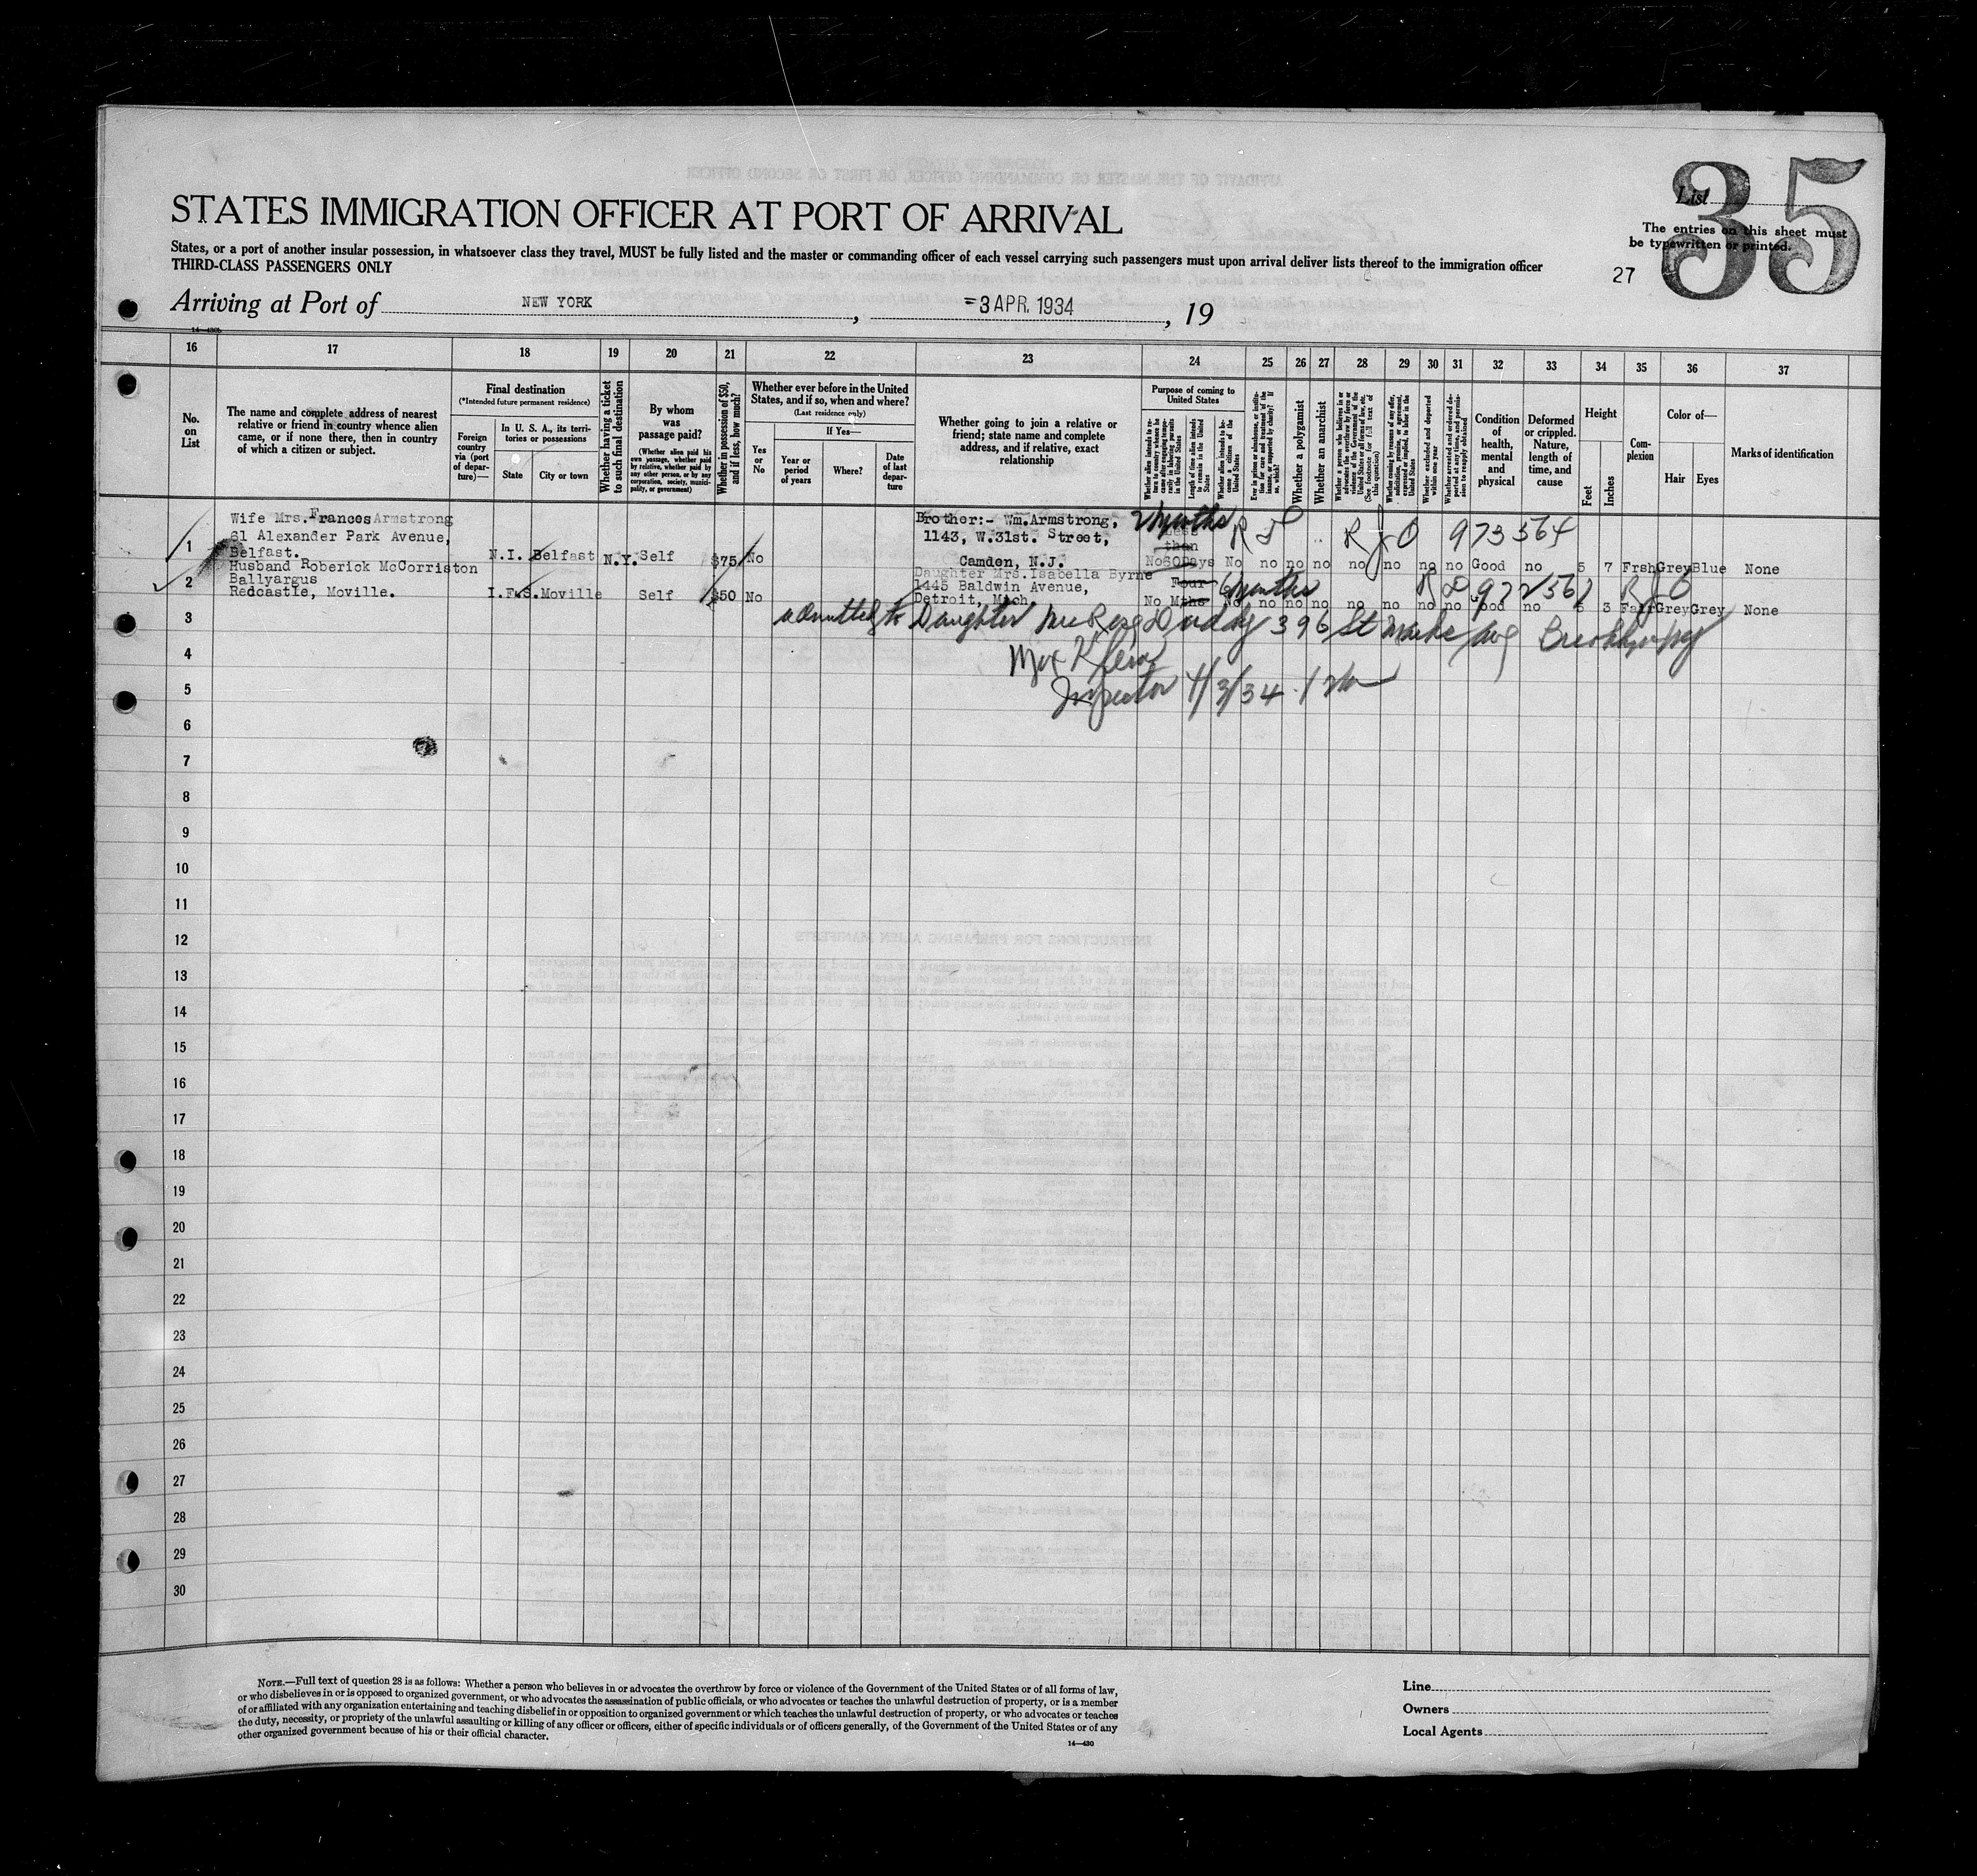 35
List
STATES IMMIGRATION OFFICER AT PORT OF ARRIVAL
The entries on this sheet must
be typewritten or printed.
States, or a port of another insular possession, in whatsoever class they travel, MUST be fully listed and the master or commanding officer of each vessel carrying such passengers must upon arrival deliver lists thereof to the immigration officer
THIRD-CLASS PASSENGERS ONLY
27
Arriving at Port of NEW YORK, =3 APR. 1934, 19
16 17 18 19 20 21 22 23 24 25 26 27 28 29 30 31 32 33 34 35 36 37
No. on List
The name and complete address of nearest
relative or friend in country whence alien
came, or if none there, then in country
of which a citizen or subject.
Final destination
(*Intended future permanent residence)
Foreign country via (port of departure)—
In U. S. A., its territories or possessions
State
City or town
Whether having a ticket to such final destination
By whom was passage paid?
(Whether alien paid his own passage, whether paid by relative, whether paid by any other person, or by any corporation, society, municipality, or government)
Whether in possession of $50, and if less, how much?
Whether ever before in the United
States, and if so, when and where?
(Last residence only)
Yes or No
If Yes—
Year or period of years
Where?
Date of last departure
Whether going to join a relative or
friend; state name and complete
address, and if relative, exact
relationship
Purpose of coming to United States
Whether alien intends to return to country whence he came after engaging temporarily in laboring pursuits in the United States
Length of time alien intends to remain in the United States
Whether alien intends to become a citizen of the United States
Ever in prison or almshouse, or institution for care and treatment of the insane, or supported by charity? If so, which?
Whether a polygamist
Whether an anarchist
Whether a person who believes in or advocates the overthrow by force or violence of the Government of the United States or all forms of law, etc. (See footnote for full text of this question)
Whether coming by reasons of any offer, solicitation, promise, or agreement, expressed or implied, to labor in the United States
Whether excluded and deported within one year
Whether arrested and ordered deported at any time, and permission to reapply obtained
Condition of health, mental and physical
Deformed or crippled. Nature, length of time, and cause
Height
Feet
Inches
Complexion
Color of—
Hair
Eyes
Marks of identification
1
Wife Mrs. Frances Armstrong
61 Alexander Park Avenue,
Belfast.
N.I. Belfast N.Y. Self $75 No
Brother:- Wm. Armstrong,
1143, W. 31st. Street,
Camden, N.J.
2 months
Less
than
No 60Days No no no no no no no no Good no 5 7 Frsh Grey Blue None
RJO 973564
2
Husband Roberick McCorriston
Ballyargus
Redcastle, Moville.
I.F.S. Moville Self $50 No
Daughter Mrs. Isabella Byrne
1445 Baldwin Avenue,
Detroit, Mich.
Four
6 months
No Mths No no no no no no no no Good no 5 3 Fair Grey Grey None
RJO
3
admitted to Daughter 396 St Marks Ave Brooklyn NY
4
5
Inspector 4/3/34
6
7
8
9
10
11
12
13
14
15
16
17
18
19
20
21
22
23
24
25
26
27
28
29
30
NOTE.—Full text of question 28 is as follows: Whether a person who believes in or advocates the overthrow by force or violence of the Government of the United States or of all forms of law,
or who disbelieves in or is opposed to organized government, or who advocates the assassination of public officials, or who advocates or teaches the unlawful destruction of property, or is a member
of or affiliated with any organization entertaining and teaching disbelief in or opposition to organized government or which teaches the unlawful destruction of property, or who advocates or teaches
the duty, necessity, or propriety of the unlawful assaulting or killing of any officer or officers, either of specific individuals or of officers generally, of the Government of the United States or of any
other organized government because of his or their official character.
14—430
Line
Owners
Local Agents